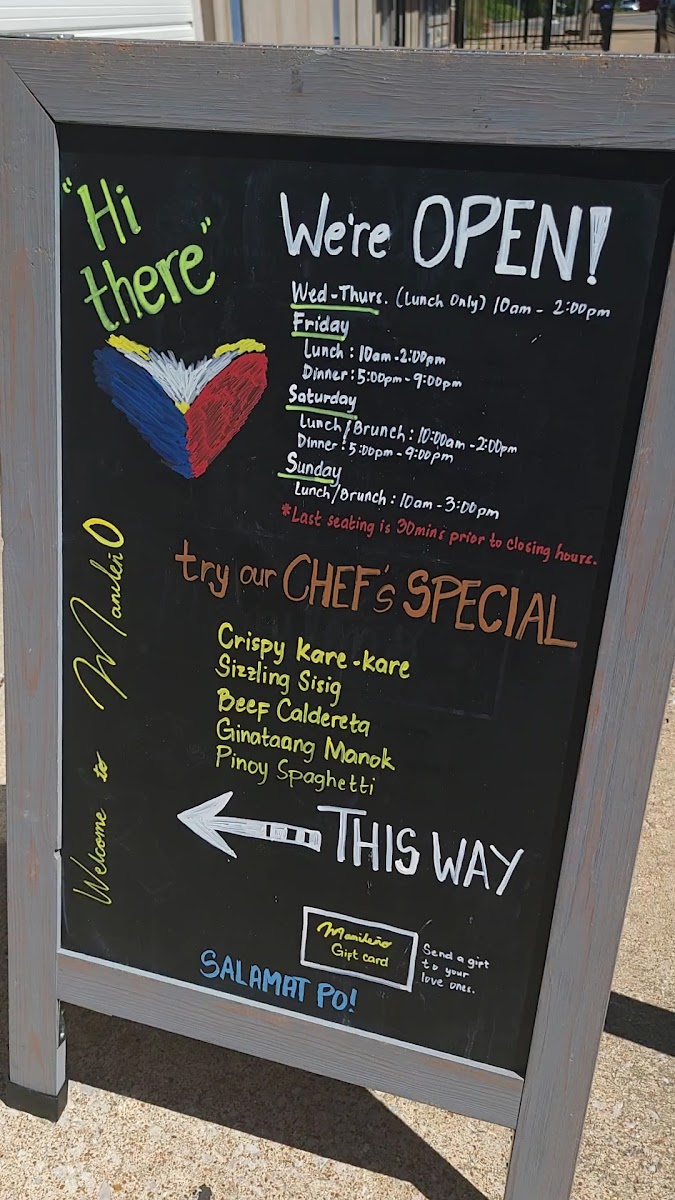 "Hi
there"
We're OPEN!
Wed-Thurs. (Lunch Only) 10am - 2:00pm
Friday
Lunch : 10am-2:00pm
Dinner : 5:00pm-9:00pm
Saturday
Lunch/Brunch : 10:00am -2:00pm
Dinner : 5:00pm - 9:00pm
Sunday
Lunch/Brunch : 10am - 3:00pm
*Last seating is 30mins prior to closing hours.
try our CHEF's SPECIAL
Crispy kare-kare
Sizzling Sisig
Beef Caldereta
Ginataang Manok
Pinoy Spaghetti
Welcome to ManileñO
THIS WAY
Manileño
Gift card
Send a gift
to your
love ones.
SALAMAT PO!